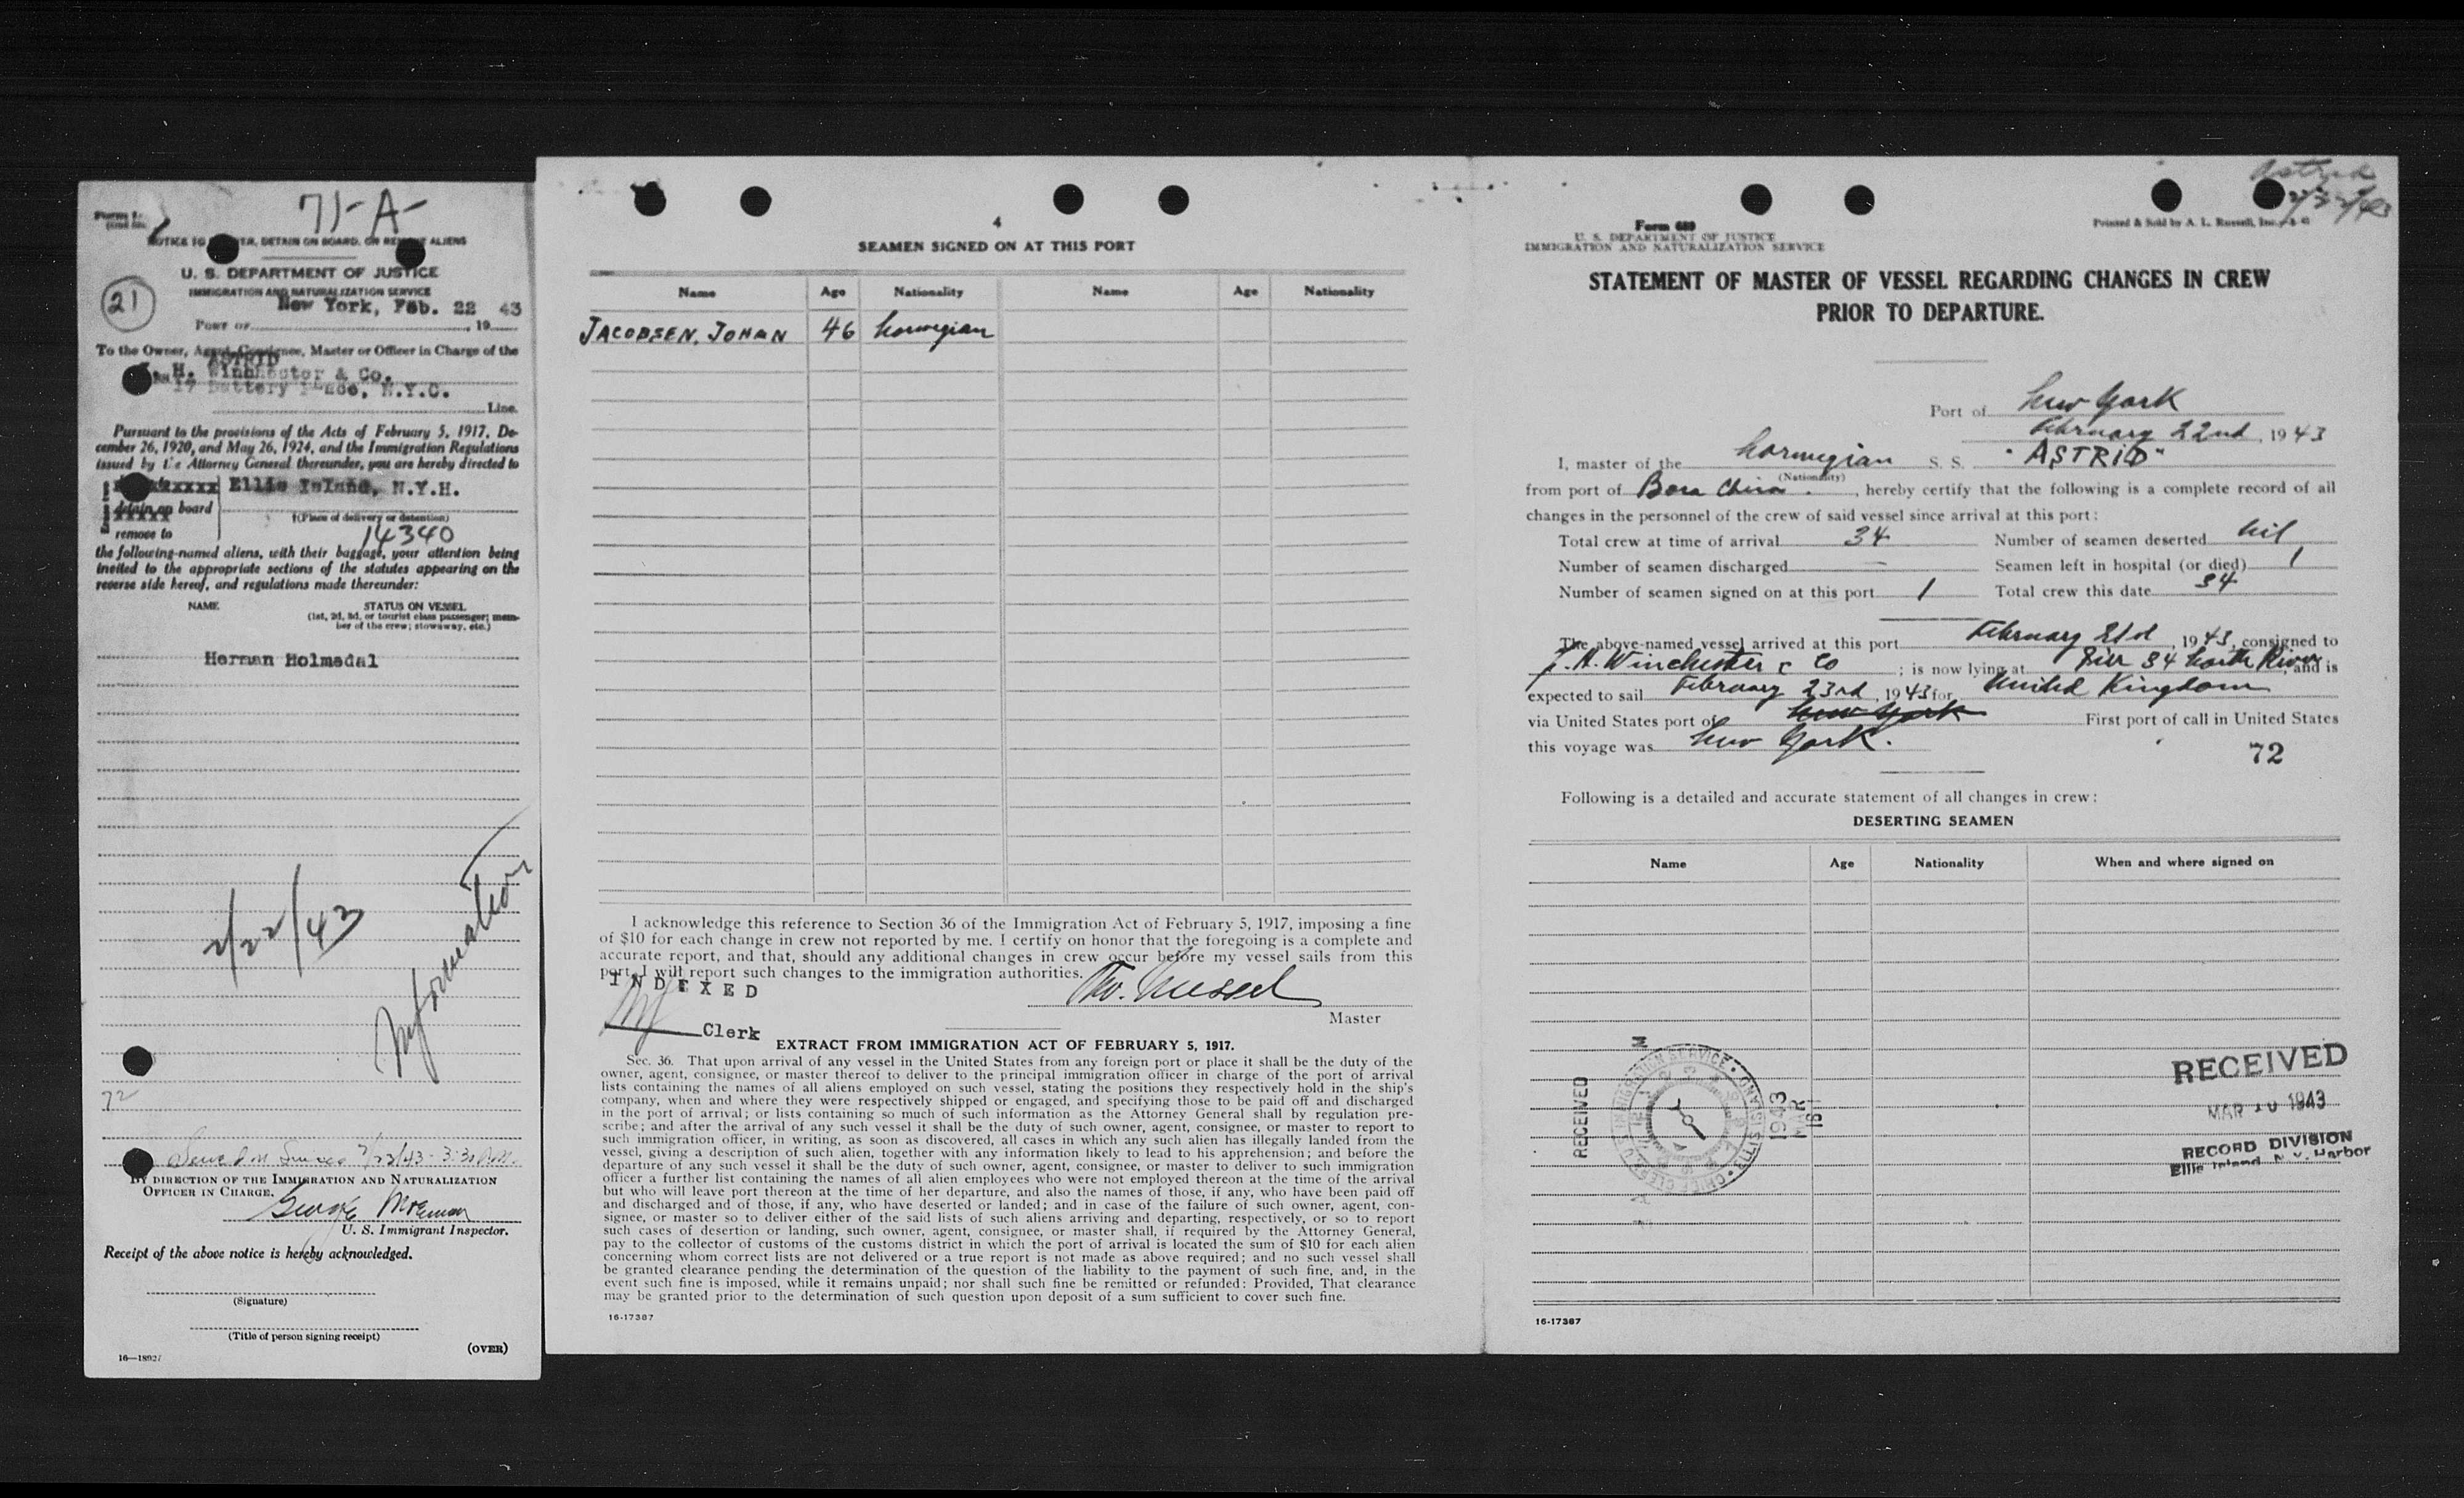 71-A-
NOTICE TO DELIVER, DETAIN ON BOARD, OR REMOVE ALIENS
U. S. DEPARTMENT OF JUSTICE
IMMIGRATION AND NATURALIZATION SERVICE
21
New York, Feb. 22 43
PORT OF , 19
To the Owner, Agent, Consignee, Master or Officer in Charge of the
ASTRID
H. Winchester & Co.
17 Battery Place, N.Y.C.
Line.
Pursuant to the provisions of the Acts of February 5, 1917, De-
cember 26, 1920, and May 26, 1924, and the Immigration Regulations
issued by the Attorney General thereunder, you are hereby directed to
Ellis Island, N.Y.H.
detain on board
†(Place of delivery or detention)
remove to
14340
the following-named aliens, with their baggage, your attention being
invited to the appropriate sections of the statutes appearing on the
reverse side hereof, and regulations made thereunder:
NAME STATUS ON VESSEL
(1st, 2d, 3d, or tourist class passenger; mem-
ber of the crew; stowaway, etc.)
Herman Holmedal
2/22/43
Information
72
2/22/43 - 3:30 P.M.
BY DIRECTION OF THE IMMIGRATION AND NATURALIZATION
OFFICER IN CHARGE.
George
U. S. Immigrant Inspector.
Receipt of the above notice is hereby acknowledged.
(Signature)
(Title of person signing receipt)
(OVER)
4
SEAMEN SIGNED ON AT THIS PORT
Name Age Nationality Name Age Nationality
JACOBSEN, JOHAN 46 Norwegian
I acknowledge this reference to Section 36 of the Immigration Act of February 5, 1917, imposing a fine
of $10 for each change in crew not reported by me. I certify on honor that the foregoing is a complete and
accurate report, and that, should any additional changes in crew occur before my vessel sails from this
port, I will report such changes to the immigration authorities.
INDEXED
Clerk
Master
EXTRACT FROM IMMIGRATION ACT OF FEBRUARY 5, 1917.
Sec. 36. That upon arrival of any vessel in the United States from any foreign port or place it shall be the duty of the
owner, agent, consignee, or master thereof to deliver to the principal immigration officer in charge of the port of arrival
lists containing the names of all aliens employed on such vessel, stating the positions they respectively hold in the ship's
company, when and where they were respectively shipped or engaged, and specifying those to be paid off and discharged
in the port of arrival; or lists containing so much of such information as the Attorney General shall by regulation pre-
scribe; and after the arrival of any such vessel it shall be the duty of such owner, agent, consignee, or master to report to
such immigration officer, in writing, as soon as discovered, all cases in which any such alien has illegally landed from the
vessel, giving a description of such alien, together with any information likely to lead to his apprehension; and before the
departure of any such vessel it shall be the duty of such owner, agent, consignee, or master to deliver to such immigration
officer a further list containing the names of all alien employees who were not employed thereon at the time of the arrival
but who will leave port thereon at the time of her departure, and also the names of those, if any, who have been paid off
and discharged and of those, if any, who have deserted or landed; and in case of the failure of such owner, agent, con-
signee, or master so to deliver either of the said lists of such aliens arriving and departing, respectively, or so to report
such cases of desertion or landing, such owner, agent, consignee, or master shall, if required by the Attorney General,
pay to the collector of customs of the customs district in which the port of arrival is located the sum of $10 for each alien
concerning whom correct lists are not delivered or a true report is not made as above required; and no such vessel shall
be granted clearance pending the determination of the question of the liability to the payment of such fine, and, in the
event such fine is imposed, while it remains unpaid; nor shall such fine be remitted or refunded: Provided, That clearance
may be granted prior to the determination of such question upon deposit of a sum sufficient to cover such fine.
16-17387
Astrid
Form 689
U. S. DEPARTMENT OF JUSTICE
IMMIGRATION AND NATURALIZATION SERVICE
Printed & Sold by A. L. Russell, Inc.
STATEMENT OF MASTER OF VESSEL REGARDING CHANGES IN CREW
PRIOR TO DEPARTURE.
Port of New York
February 22nd, 1943
I, master of the Norwegian S. S. "ASTRID"
(Nationality)
from port of , hereby certify that the following is a complete record of all
changes in the personnel of the crew of said vessel since arrival at this port:
Total crew at time of arrival 34 Number of seamen deserted nil
Number of seamen discharged — Seamen left in hospital (or died) 1
Number of seamen signed on at this port 1 Total crew this date 34
The above-named vessel arrived at this port February 21st, 1943, consigned to
J. H. Winchester & Co ; is now lying at Pier 84 North River, and is
expected to sail February 23rd, 1943 for United Kingdom
via United States port of New York First port of call in United States
this voyage was New York.
72
Following is a detailed and accurate statement of all changes in crew:
DESERTING SEAMEN
Name Age Nationality When and where signed on
RECEIVED
1943
RECEIVED
MAR 10 1943
RECORD DIVISION
Ellis Island, N. Y. Harbor
16-17387